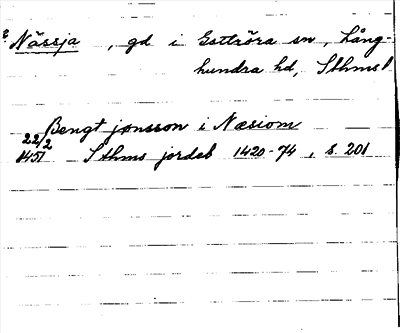 Nässja, gd i Esttröra sn, Lång-
hundra hd, Sthms l
Bengt jonsson i Næsiom
22/2
1451 Sthms jordeb 1420-74, s. 201